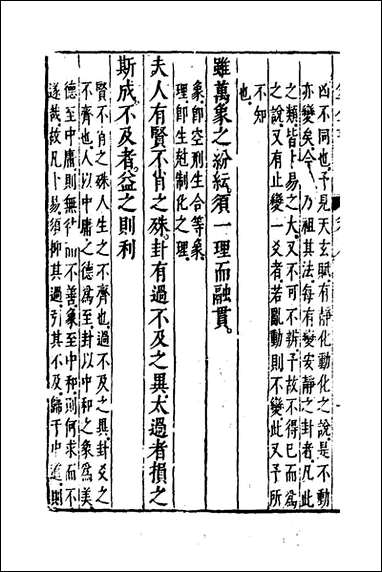 凶不同也予見天玄賦有靜化動化之說是不動
亦變矣今 乃祖其法每有變安靜之卦者凡此
之類皆卜易之大又不可不辨予故不得已而為
之說又有止變一爻者若亂動則不變此又予所
不知
也
雖萬象之紛紜須一理而融貫
象即空刑生合等象
理即生尅制化之理
夫人有賢不肖之殊卦有過不及之異太過者損之
斯成不及者益之則利
賢不肖之殊人生之不齊也過不及之異卦爻之
不齊也人以中庸之德為至卦以中和之象為美
德至中庸則無往而不善象至中和則何求而不
遂哉故凡卜易須抑其過引其不及歸于中道則